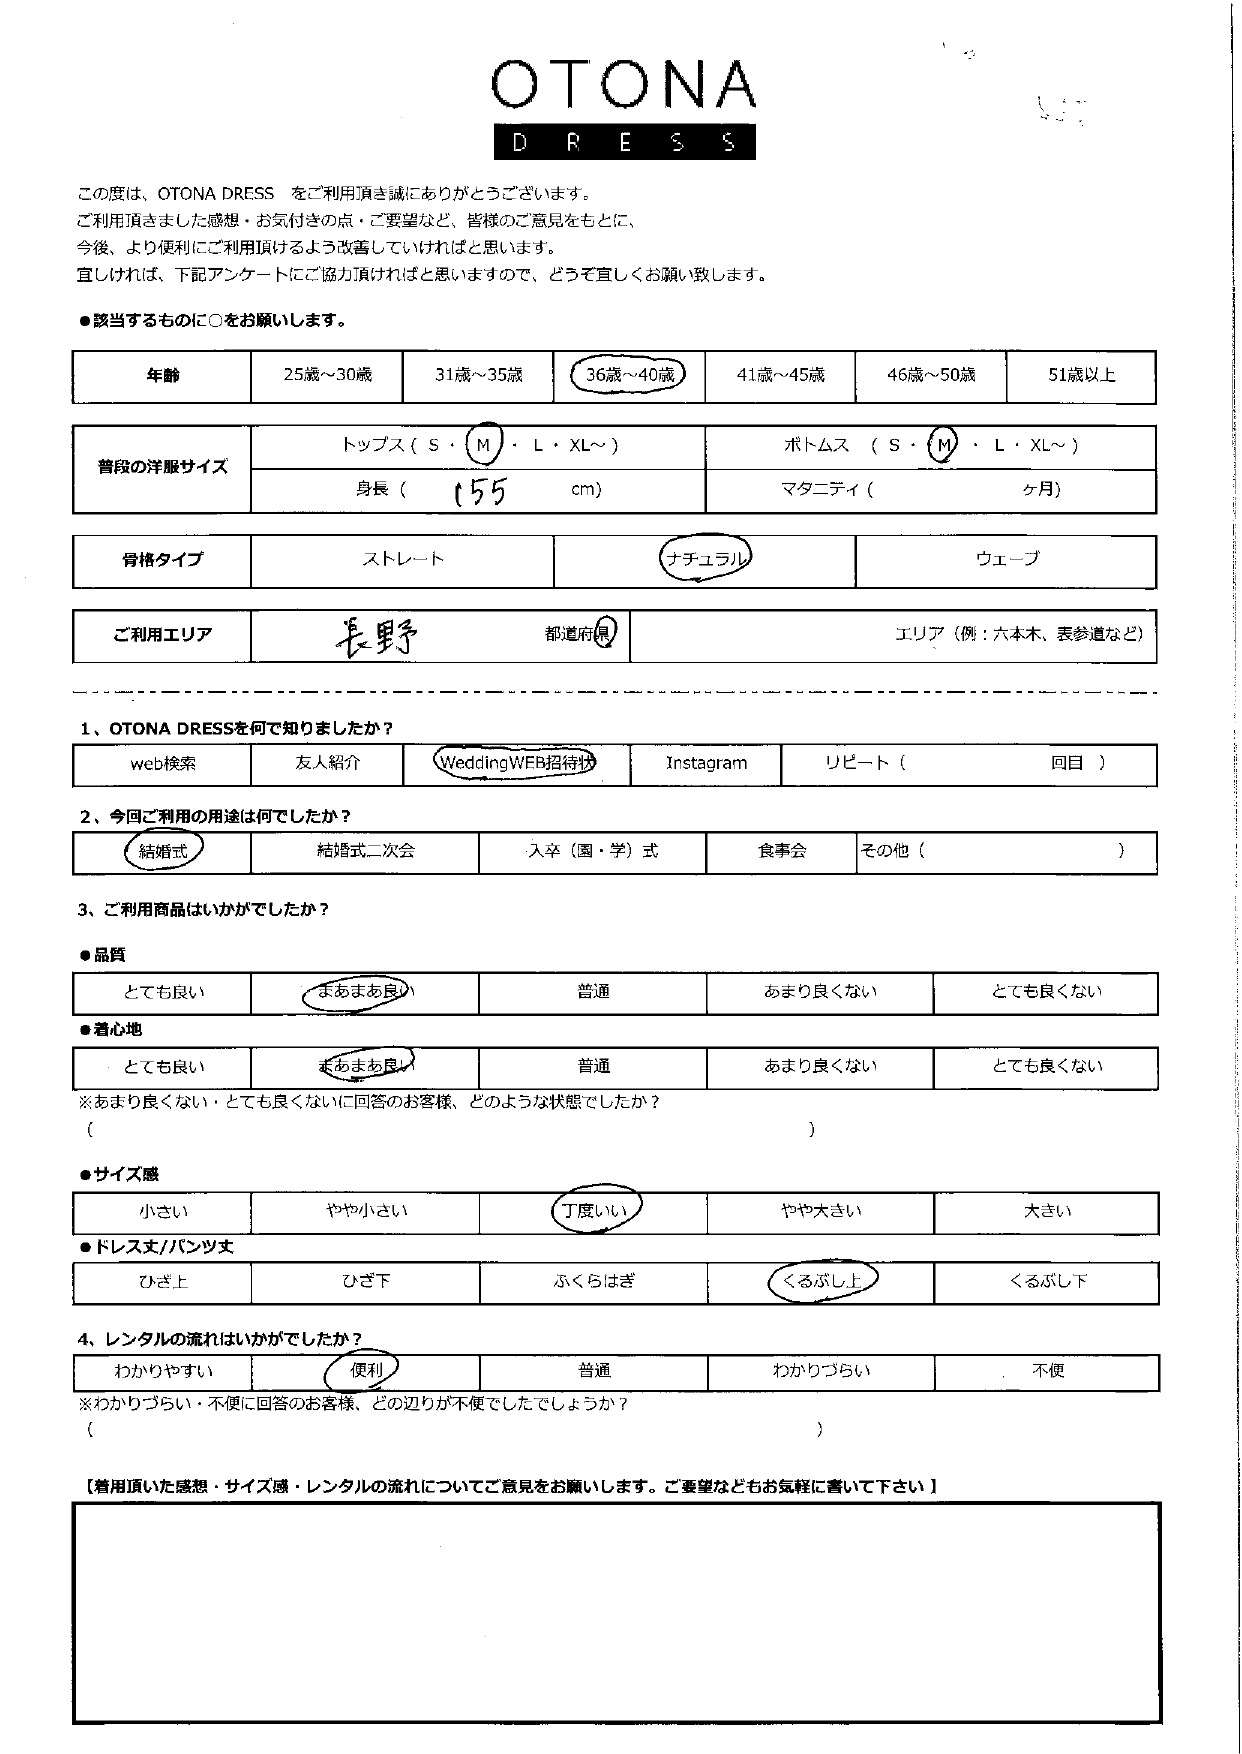 OTONA
DRESS
この度は、OTONA DRESS　をご利用頂き誠にありがとうございます。
ご利用頂きました感想・お気付きの点・ご要望など、皆様のご意見をもとに、
今後、より便利にご利用頂けるよう改善していければと思います。
宜しければ、下記アンケートにご協力頂ければと思いますので、どうぞ宜しくお願い致します。
●該当するものに○をお願いします。
年齢 25歳～30歳 31歳～35歳 36歳～40歳 41歳～45歳 46歳～50歳 51歳以上
普段の洋服サイズ
トップス ( S ・ M ・ L ・ XL～ ) ボトムス ( S ・ M ・ L ・ XL～ )
身長 ( 155 cm) マタニティ ( ヶ月)
骨格タイプ ストレート ナチュラル ウェーブ
ご利用エリア 長野 都道府県 エリア（例：六本木、表参道など）
1、OTONA DRESSを何で知りましたか？
web検索 友人紹介 WeddingWEB招待状 Instagram リピート（ 回目 ）
2、今回ご利用の用途は何でしたか？
結婚式 結婚式二次会 入卒（園・学）式 食事会 その他（ ）
3、ご利用商品はいかがでしたか？
●品質
とても良い まあまあ良い 普通 あまり良くない とても良くない
●着心地
とても良い まあまあ良い 普通 あまり良くない とても良くない
※あまり良くない・とても良くないに回答のお客様、どのような状態でしたか？
（ ）
●サイズ感
小さい やや小さい 丁度いい やや大きい 大きい
●ドレス丈/パンツ丈
ひざ上 ひざ下 ふくらはぎ くるぶし上 くるぶし下
4、レンタルの流れはいかがでしたか？
わかりやすい 便利 普通 わかりづらい 不便
※わかりづらい・不便に回答のお客様、どの辺りが不便でしたでしょうか？
（ ）
【着用頂いた感想・サイズ感・レンタルの流れについてご意見をお願いします。ご要望などもお気軽に書いて下さい】